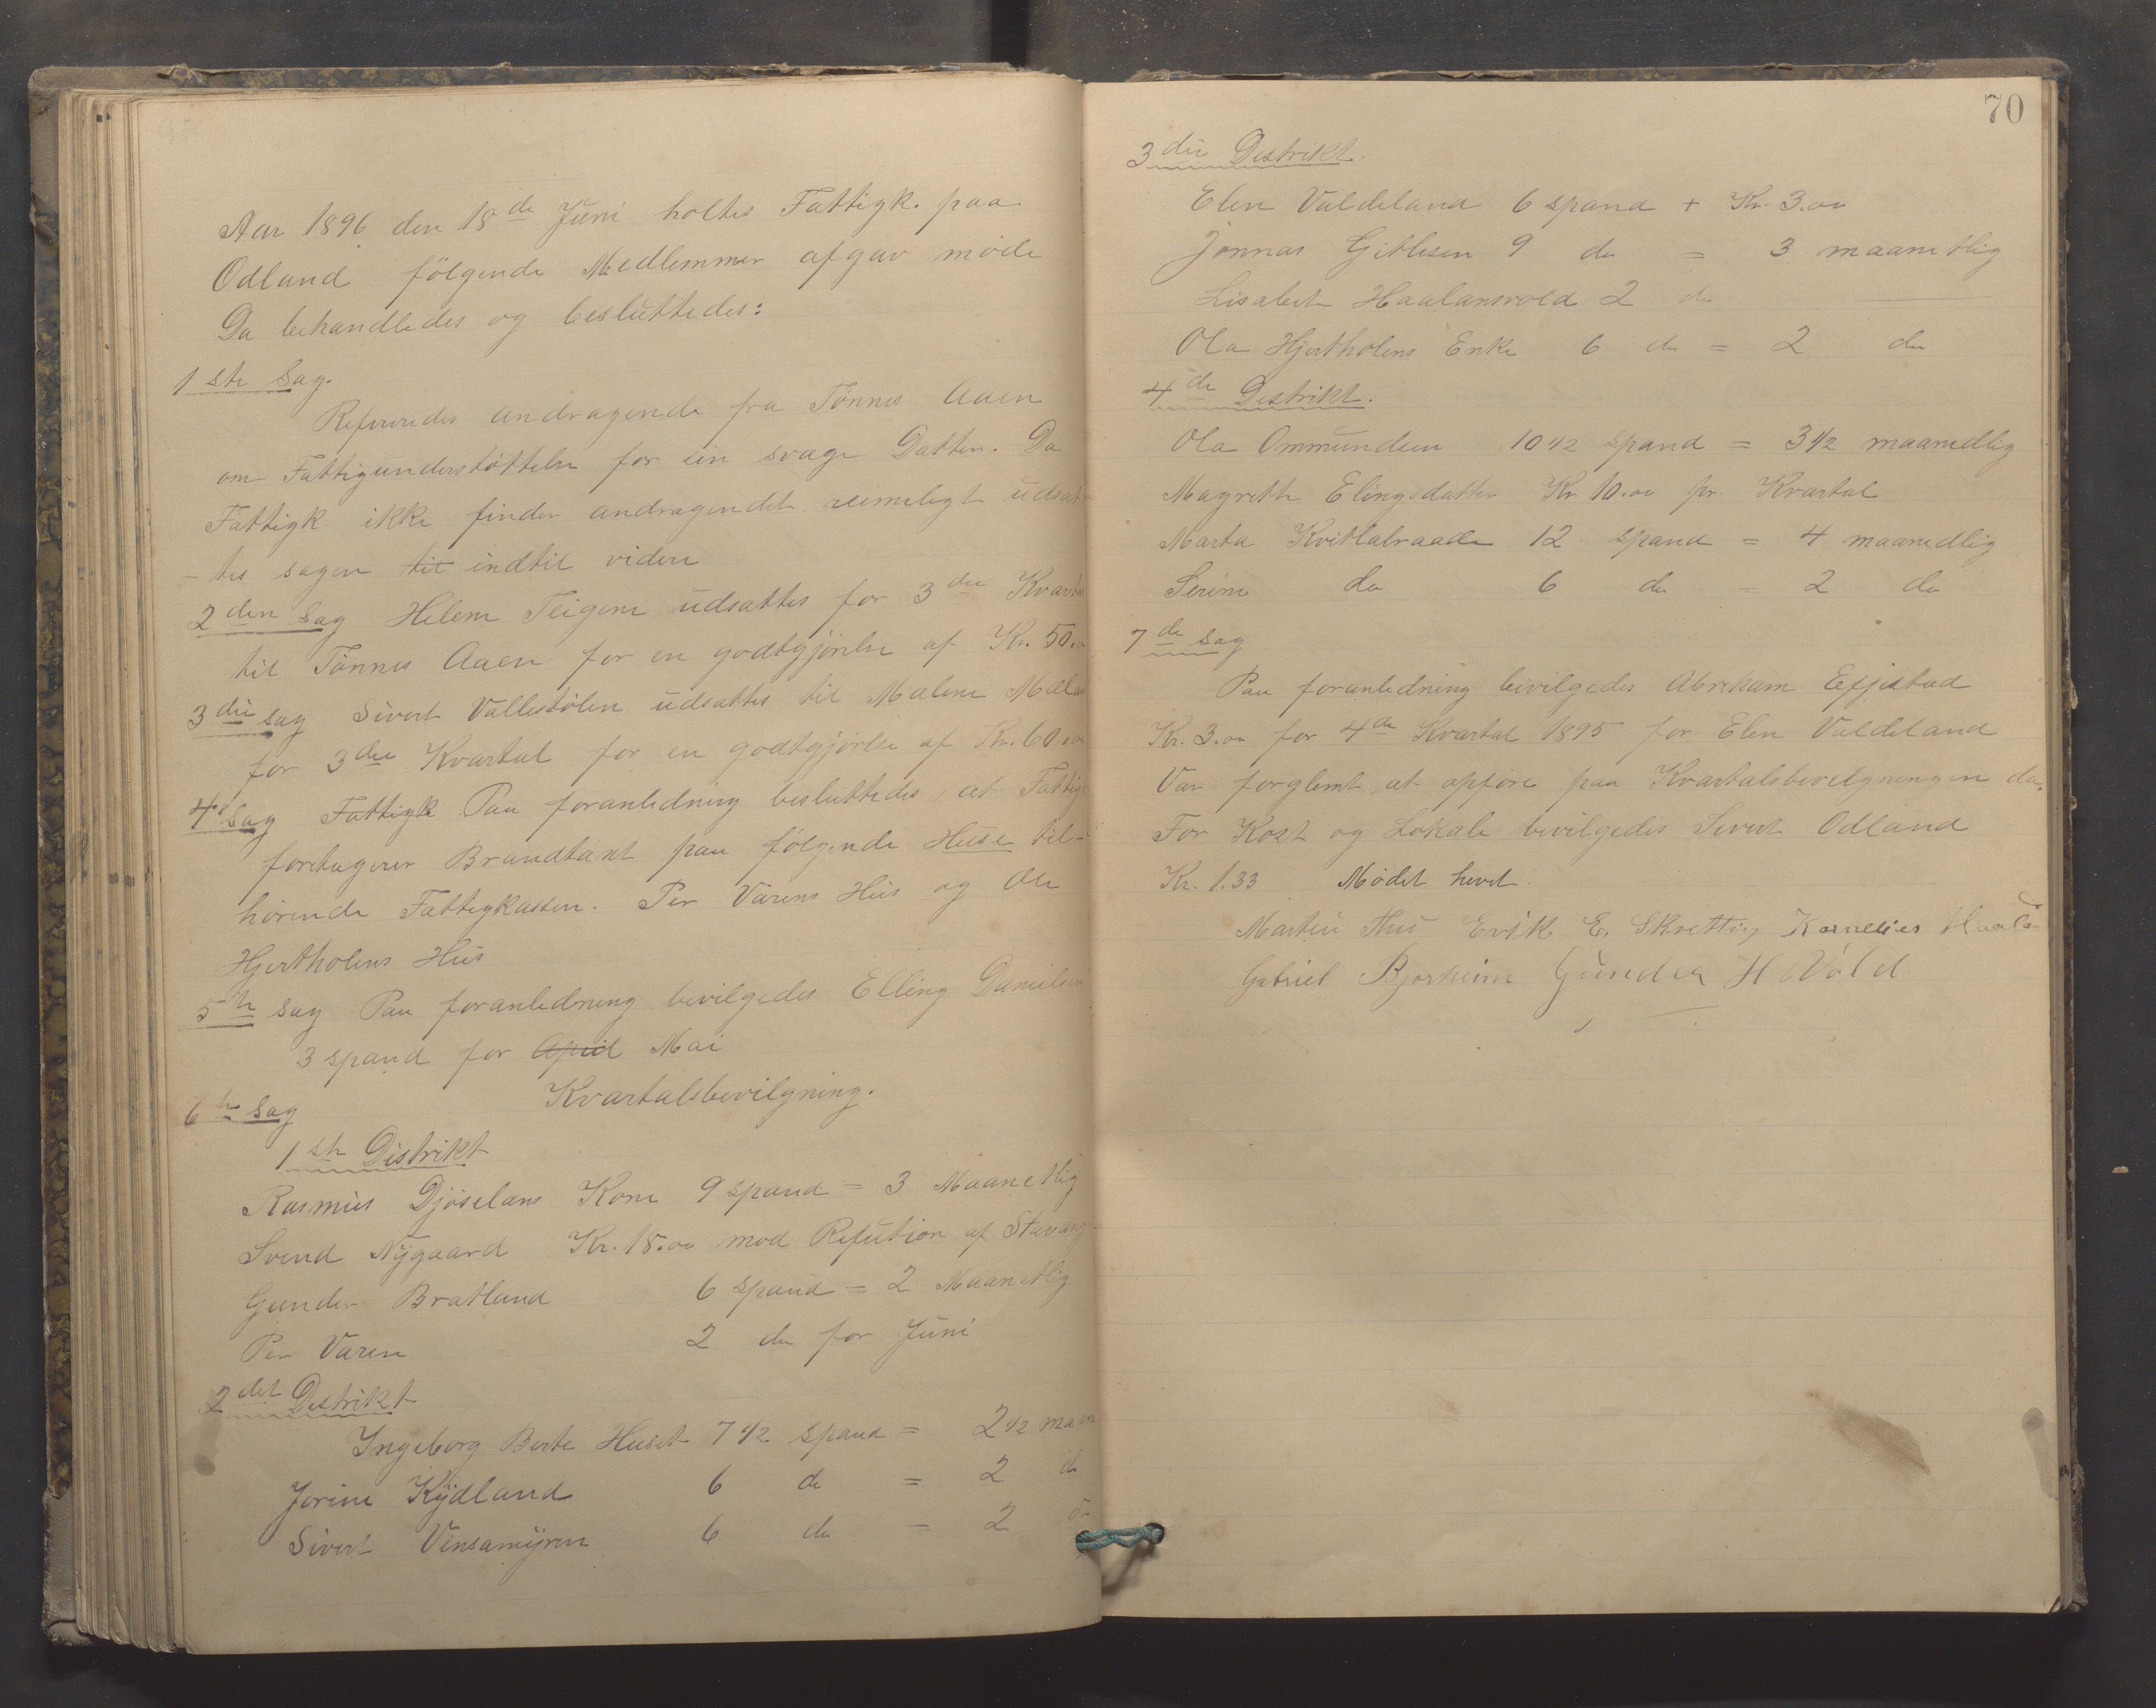 Aar 1896 den 18de Juni holtes Fattigk. paa
Odland følgende Medlemmer afgav møde
Da behandledes og besluttedes:
1ste Sag.
Refereredes andragende fra Tønnes Aaen
om Fattigunderstøttelse for sin svage Datter. Da
Fattigk. ikke finder andragendet reimeligt udsat
-tes sagen til indtil videre
2den Sag Helene Teigen udsattes for 3die Kvartal
til Tønnes Aaen for en godtgjørelse af Kr. 50.00
3die Sag Sivert Vallestølen udsattes til Malene
for 3die Kvartal for en godtgjørelse af Kr. 60.00
4 Sag Fattigk Paa foranledning besluttedes, at Fattigk
foretagerer Brandtaxt paa følgende Huse til-
hørende Fattigkassen. Per Varens Hus og Ole
Hjertholens Hus
5te Sag Paa foranledning bevilgedes Elling Danielsen
3 spand for April Mai
6te Sag Kvartalsbevilgning.
1ste Distrikt
Rasmus Djøselans Kone 9 spand = 3 Maanetlig
Svend Nygaard Kr. 18.00 mod Refution af Stavang
Gunder Bratland 6 spand = 2 Maanetlig
Per Varen 2 do for Juni
2det Destrikt
Ingeborg Berte Huset 7 1/2 spand = 2 1/2 maan
Jorine Kydland 6 do = 2 do
Sivert Vinsamyren 6 do = 2 do
70
3die Destrikt.
Elen Valdeland 6 spand + Kr. 3.00
Jonnas Gitlesen 9 do = 3 maanetlig
Lisabet Haalansvold 2 do
Ola Hjertholens Enke 6 do = 2 do
4de Destrikt.
Ola Ommundsen 10 1/2 spand = 3 1/2 maanedlig
Magrethe Elingsdatter Kr 10.00 pr. Kvartal
Marta Kvitlabraade 12 spand = 4 maanedlig
Serine do 6 do = 2 do
7de Sag
Paa foranledning bevilgedes Abreham Efjestad
Kr. 3.00 for 4de Kvartal 1895 for Elen Valdeland
Var forglemt at opføre paa Kvartalsbevelgningen da.
For Kost og Lokale bevilgedes Sivert Odland
Kr. 1.33 Mødet hevet
Marten Thu Erik E. Skretting Kornelius Haaland
Gabriel Bjorheim Gunder H Vold